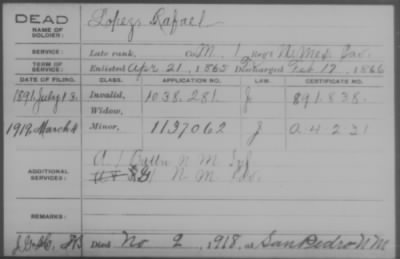 DEAD
NAME OF SOLDIER: Lopez Rafael
SERVICE: Late rank, Co. M, 1 Reg't N. Mex Cav.
TERM OF SERVICE: Enlisted Apr 21, 1865 Discharged Feb 17, 1866
DATE OF FILING. CLASS. APPLICATION NO. LAW. CERTIFICATE NO.
1891 July 13. Invalid, 1038.281. J 891.838.
Widow,
1919 March 4 Minor, 1137062 J
ADDITIONAL SERVICES: A 1 Battn N M Inf
N M
REMARKS:
Died No 2, 1918, at San Pedro N M